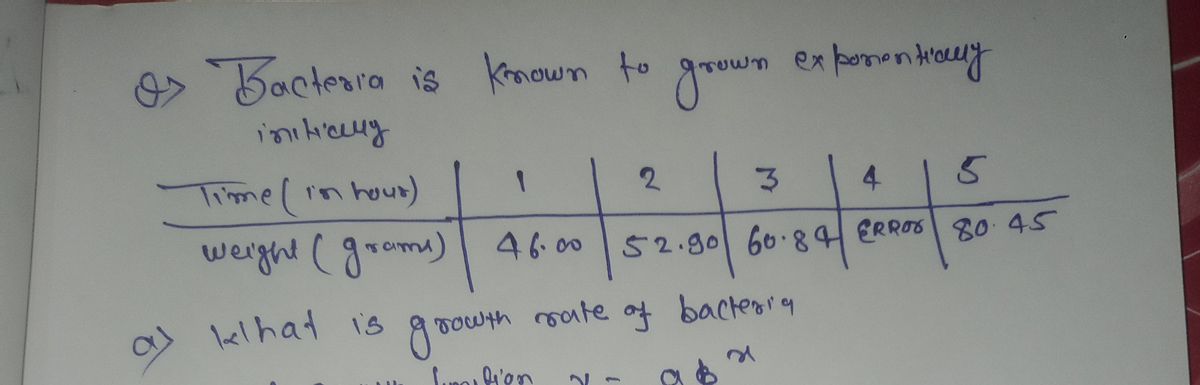 Q> Bacteria is known to grown exponentially
initially
Time (in hour) 1 2 3 4 5
weight (grams) 46.00 52.90 60.84 ERROR 80.45
a) What is growth rate of bacteria
y = ab^x